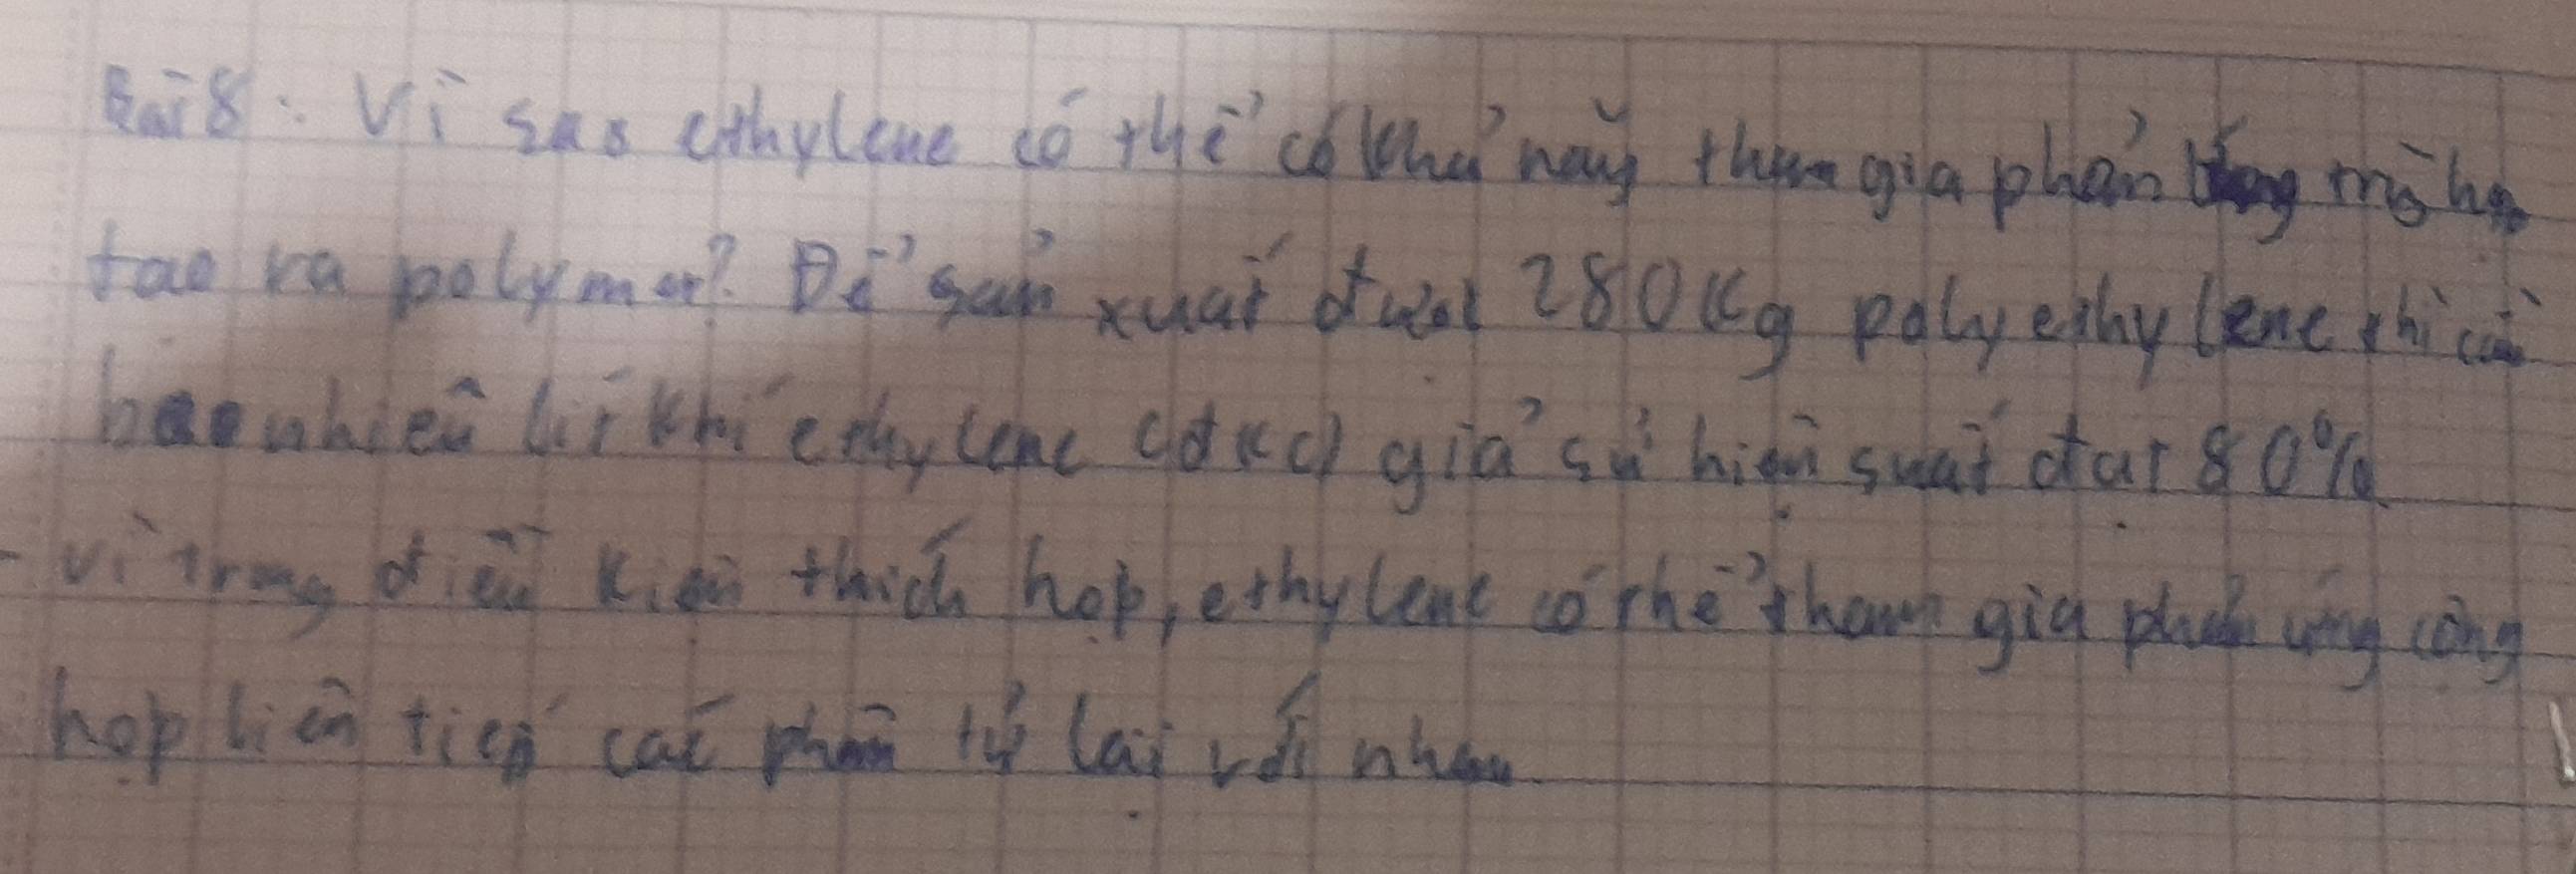 Bài 8: Vì sao ethylene có thể có khả năng tham gia phản ứng trùng hợp
tạo ra polymer? Để sản xuất được 280 Kg polyethylene thì cần
bao nhiêu lít khí ethylene (đkc) giả sử hiệu suất đạt 80%
- vì trong điều kiện thích hợp, ethylene có thể tham gia phản ứng cộng
hợp liên tiếp các phân tử lại với nhau